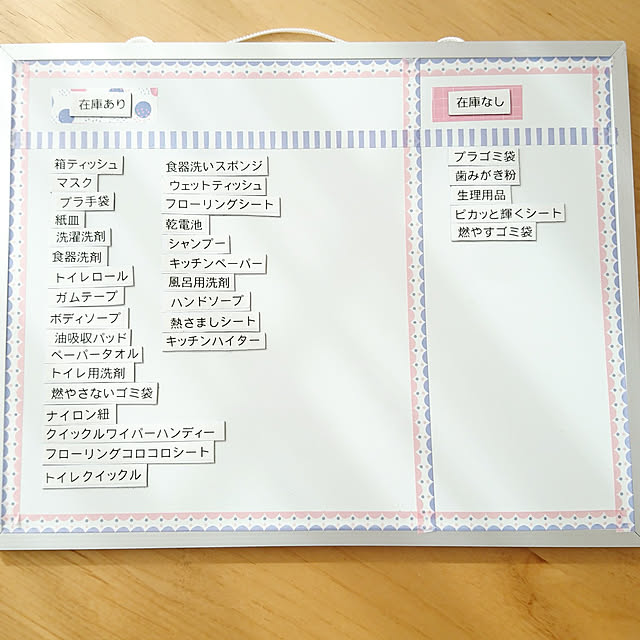 在庫あり
在庫なし
箱ティッシュ
マスク
プラ手袋
紙皿
洗濯洗剤
食器洗剤
トイレロール
ガムテープ
ボディソープ
油吸収パッド
ペーパータオル
トイレ用洗剤
燃やさないゴミ袋
ナイロン紐
クイックルワイパーハンディー
フローリングコロコロシート
トイレクイックル
食器洗いスポンジ
ウェットティッシュ
フローリングシート
乾電池
シャンプー
キッチンペーパー
風呂用洗剤
ハンドソープ
熱さましシート
キッチンハイター
プラゴミ袋
歯みがき粉
生理用品
ピカッと輝くシート
燃やすゴミ袋